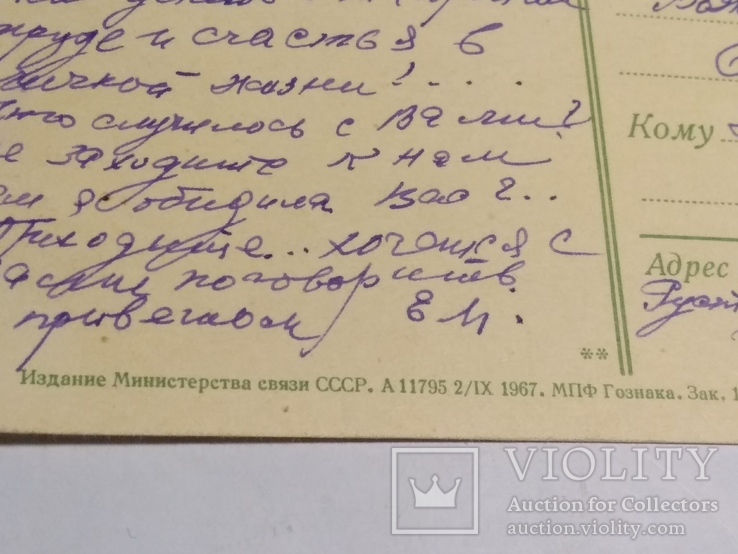 труде и счастья в
личной жизни!....
Что случилось с Вами?
не заходите к нам
чем я обидила Вас?..
Приходите... хочется с
Вами поговорить
приветом ЕМ.
**
Издание Министерства связи СССР. А 11795 2/IX 1967. МПФ Гознака. Зак. 1
Кому
Адрес
VIOLITY
Auction for Collectors
auction.violity.com